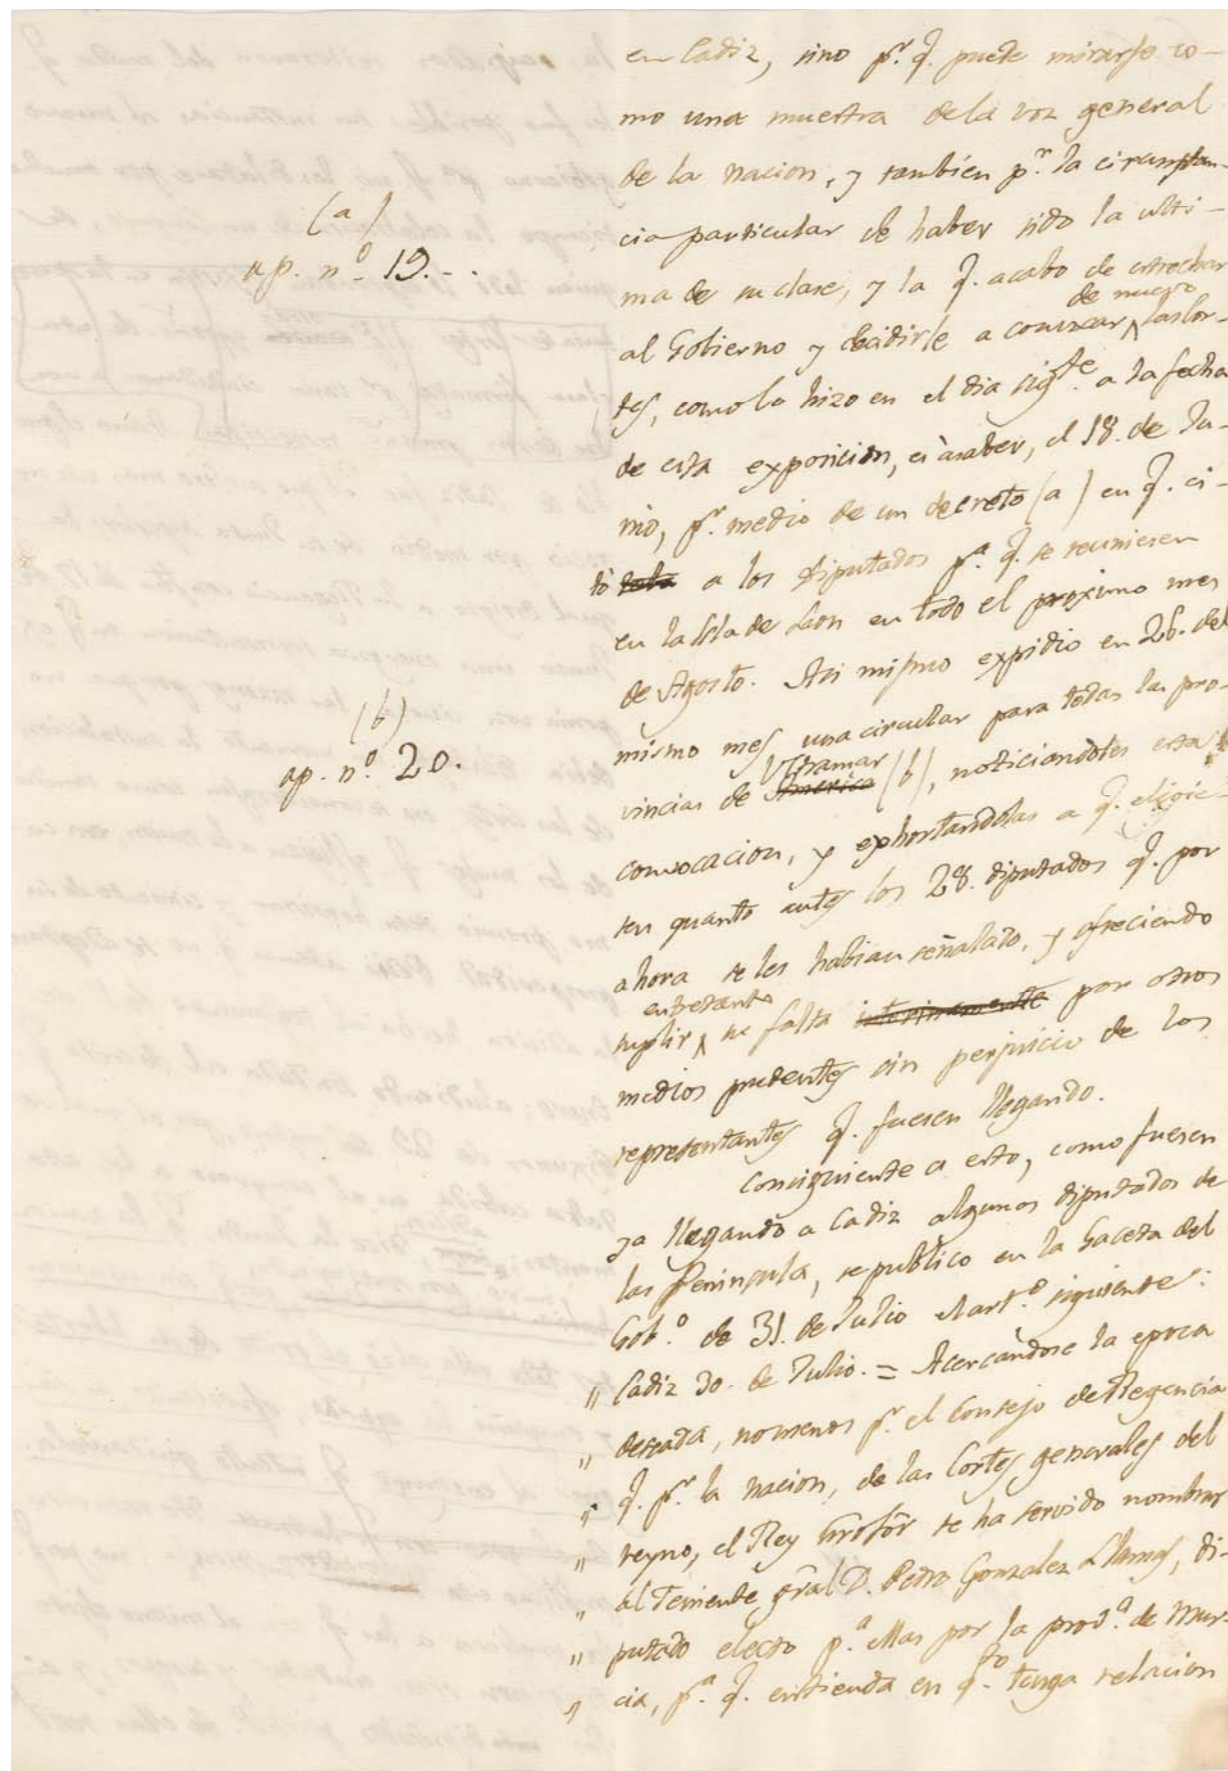 en Cadiz, sino pr. q. puede mirarse co-
mo una muestra dela voz general
de la nacion, y tambien pr. la circunstan-
cia particular de haber sido la ulti-
(a)
ap. nº. 19...
ma de su clase, y la q. acabo de estrechar
de nuevo
al Gobierno y decidirle a convocar ^ las Cor-
tes, como lo hizo en el dia sigte. a la fecha
de esta exposicion, es à saber, el 18. de Ju-
nio, pr. medio de un decreto (a) en q. ci-
tò a los diputados pa. q. se reuniesen
en la Isla de Leon en todo el proximo mes
de Agosto. Asi mismo expidio en 26. del
(b)
ap. nº. 20.
mismo mes una circular para todas las pro-
Ultramar
vincias de America (b), noticiandoles esta
convocacion, y exhortandolas a q. eligie-
sen quanto antes los 28. diputados q. por
ahora se les habian señalado, y ofreciendo
entretanto
suplir ^ su falta interinamente por otros
medios prudentes sin perjuicio de los
representantes q. fuesen llegando.
Consiguiente a esto, como fuesen
ya llegando a Cadiz algunos diputados de
las Peninsula, se publico en la Gaceta del
Gobº. de 31. de Julio el artº. siguiente:
" Cadiz 30. de Julio. = Acercandose la epoca
" deseada, no menos pr. el Consejo de Regencia
" q. pr. la nacion, de las Cortes generales del
" reyno, el Rey ñroSõr se ha servido nombrar
" al Teniente gr̃al D. Pedro Gonzalez Llamas, di-
" putado electo pa. ellas por la prova. de Mur-
" cia, pa. q. entienda en qto. tenga relacion